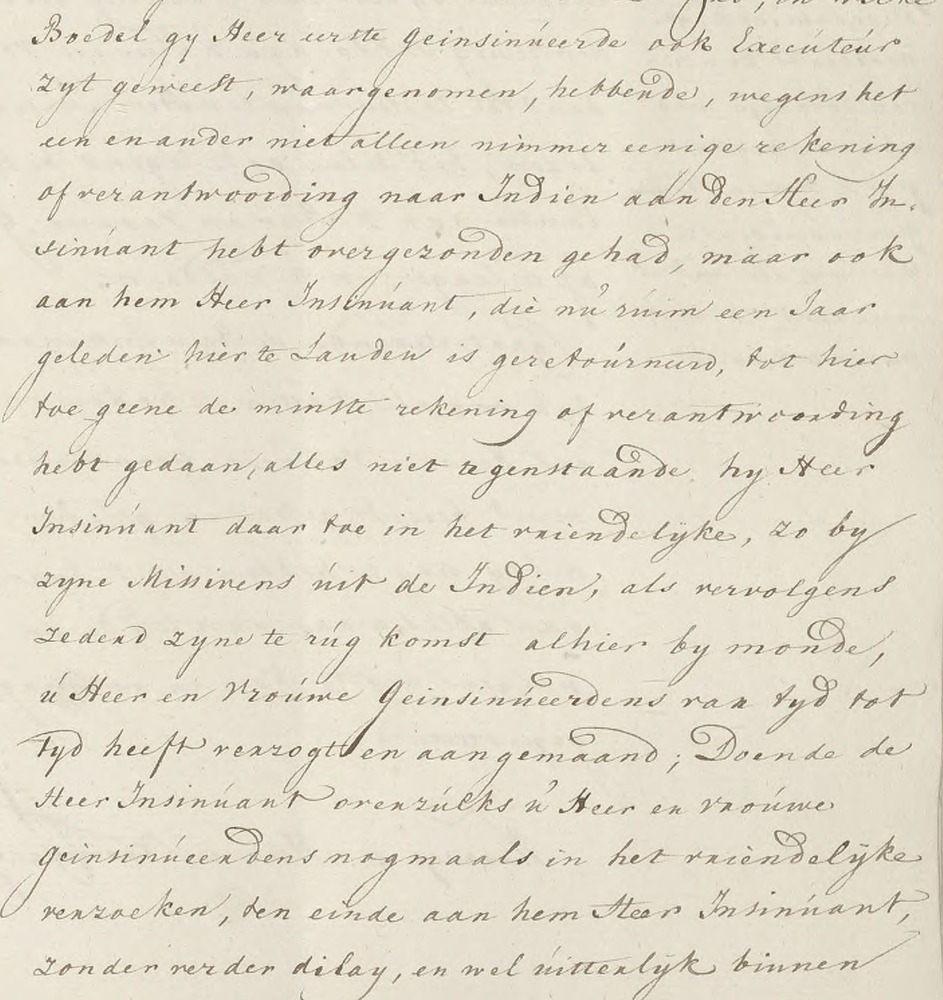 Boedel gy Heer eerste geinsinúeerde ook Execúteúr
zyt geweest, waargenomen, hebbende, wegens het
een en ander niet alleen nimmer eenige rekening
of verantwoording naar Indien aan den Heer In-
sinúant hebt overgezonden gehad, maar ook
aan hem Heer Insinúant, die nú rúim een Jaar
geleden hier te Landen is geretoúrneerd, tot hier
toe geene de minste rekening of verantwoording
hebt gedaan, alles niet tegenstaande hy Heer
Insinúant daar toe in het vriendelyke, zo by
zyne Missivens úit de Indien, als vervolgens
zederd zyne te rúg komst alhier by monde,
ú Heer en Vroúwe Geinsinúeerdens van tyd tot
tyd heeft verzogt en aangemaand; Doende de
Heer Insinúant overzúlks ú Heer en vroúwe
geinsinúeerdens nogmaals in het vriendelyke
verzoeken, ten einde aan hem Heer Insinúant,
zonder verder dilay, en wel úitterlyk binnen